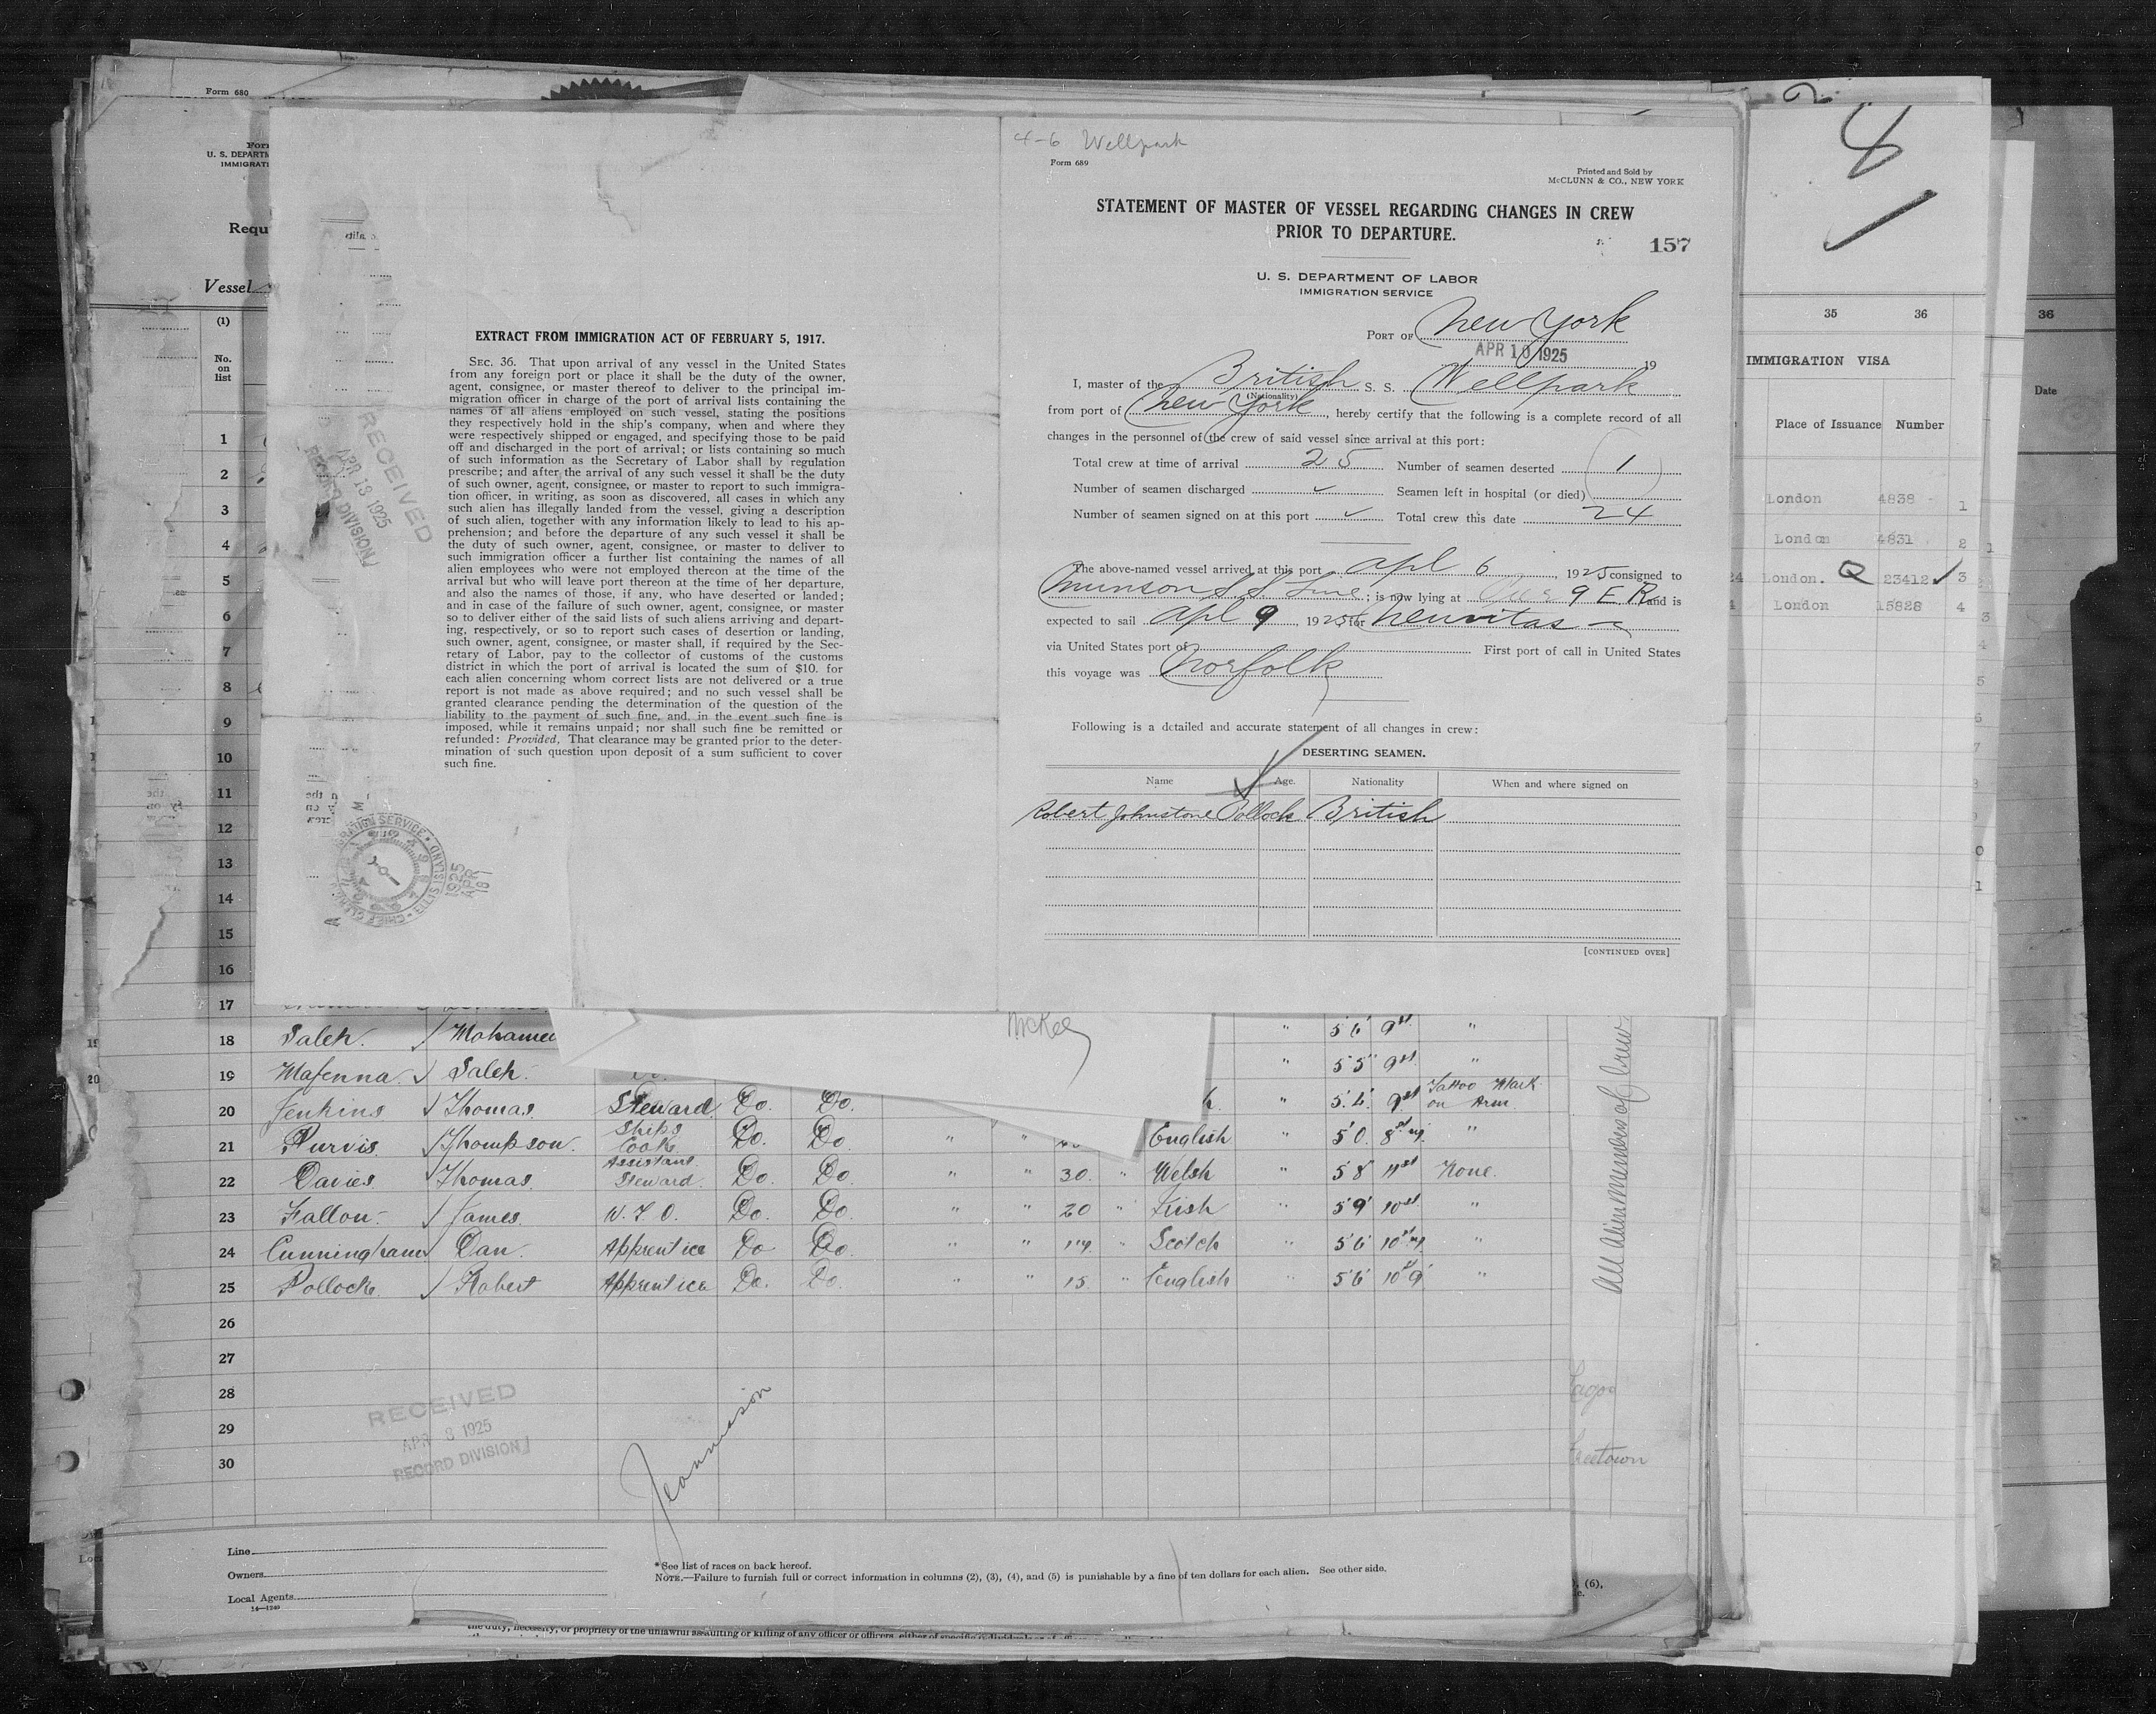 Form 680
U. S. DEPARTM
IMMIGRATI
Requ
Vessel
(1)
No. on list
4-6 Wellpark
Form 689
Printed and Sold by
McCLUNN & CO., NEW YORK
STATEMENT OF MASTER OF VESSEL REGARDING CHANGES IN CREW
PRIOR TO DEPARTURE.
157
U. S. DEPARTMENT OF LABOR
IMMIGRATION SERVICE
PORT OF New York
APR 10 1925 19
I, master of the British S. S. Wellpark
(Nationality)
from port of New York, hereby certify that the following is a complete record of all
changes in the personnel of the crew of said vessel since arrival at this port:
Total crew at time of arrival 25 Number of seamen deserted (1)
Number of seamen discharged ✓ Seamen left in hospital (or died)
Number of seamen signed on at this port ✓ Total crew this date 24
The above-named vessel arrived at this port apl 6, 1925 consigned to
Munson S. S. Line; is now lying at Pier 9 E R and is
expected to sail apl 9 1925 for Neuvitas
via United States port of First port of call in United States
this voyage was Norfolk
Following is a detailed and accurate statement of all changes in crew:
DESERTING SEAMEN.
Name Age. Nationality When and where signed on
Robert Johnstone Pollock British
[CONTINUED OVER]
EXTRACT FROM IMMIGRATION ACT OF FEBRUARY 5, 1917.
SEC. 36. That upon arrival of any vessel in the United States
from any foreign port or place it shall be the duty of the owner,
agent, consignee, or master thereof to deliver to the principal im-
migration officer in charge of the port of arrival lists containing the
names of all aliens employed on such vessel, stating the positions
they respectively hold in the ship's company, when and where they
were respectively shipped or engaged, and specifying those to be paid
off and discharged in the port of arrival; or lists containing so much
of such information as the Secretary of Labor shall by regulation
prescribe; and after the arrival of any such vessel it shall be the duty
of such owner, agent, consignee, or master to report to such immigra-
tion officer, in writing, as soon as discovered, all cases in which any
such alien has illegally landed from the vessel, giving a description
of such alien, together with any information likely to lead to his ap-
prehension; and before the departure of any such vessel it shall be
the duty of such owner, agent, consignee, or master to deliver to
such immigration officer a further list containing the names of all
alien employees who were not employed thereon at the time of the
arrival but who will leave port thereon at the time of her departure,
and also the names of those, if any, who have deserted or landed;
and in case of the failure of such owner, agent, consignee, or master
so to deliver either of the said lists of such aliens arriving and depart-
ing, respectively, or so to report such cases of desertion or landing,
such owner, agent, consignee, or master shall, if required by the Sec-
retary of Labor, pay to the collector of customs of the customs
district in which the port of arrival is located the sum of $10. for
each alien concerning whom correct lists are not delivered or a true
report is not made as above required; and no such vessel shall be
granted clearance pending the determination of the question of the
liability to the payment of such fine, and, in the event such fine is
imposed, while it remains unpaid; nor shall such fine be remitted or
refunded: Provided, That clearance may be granted prior to the deter-
mination of such question upon deposit of a sum sufficient to cover
such fine.
RECEIVED
APR 13 1925
RECORD DIVISION
ELLIS ISLAND
1925
APR
181
35 36
IMMIGRATION VISA
Place of Issuance Number
London 4838 1
London 4831 2
London. Q 23412 ✓ 3
London 15828 4
36
Date
1
2
3
4
5
6
7
8
9
10
11
12
13
14
15
16
17
McKee
18 Saleh. / Mohamed " 5'6 9st "
19 Mafenna. ✓ Saleh. " 5'5" 9st "
20 Jenkins ✓ Thomas. Steward Do. Do. " 5'6' 9st Tattoo Mark on Arm.
21 Purvis. ✓ Thompson. Ships Cook Do. Do " " English " 5'0. "
22 Davies. Thomas. Assistant Steward. Do. Do. " " 30. " Welsh " 5'8' 11st None.
23 Fallon. / James. W. T. O. Do. Do. " " 20 " Irish " 5'9' 10st "
24 Cunningham / Dan. Apprentice Do Do. " " 17. " Scotch " 5'6 "
25 Pollock. / Robert Apprentice Do. Do. " " 15. " English " 5'6' 10st 9 "
26
27
28
29
30
RECEIVED
APR 8 1925
RECORD DIVISION
All alien members of crew
Lagos
Freetown
Line
Owners
Local Agents
14—1240
* See list of races on back hereof.
NOTE.—Failure to furnish full or correct information in columns (2), (3), (4), and (5) is punishable by a fine of ten dollars for each alien. See other side.
, (6),
the duty, necessity, or propriety of the unlawful assaulting or killing of any officer or officers, either of specific individuals or of